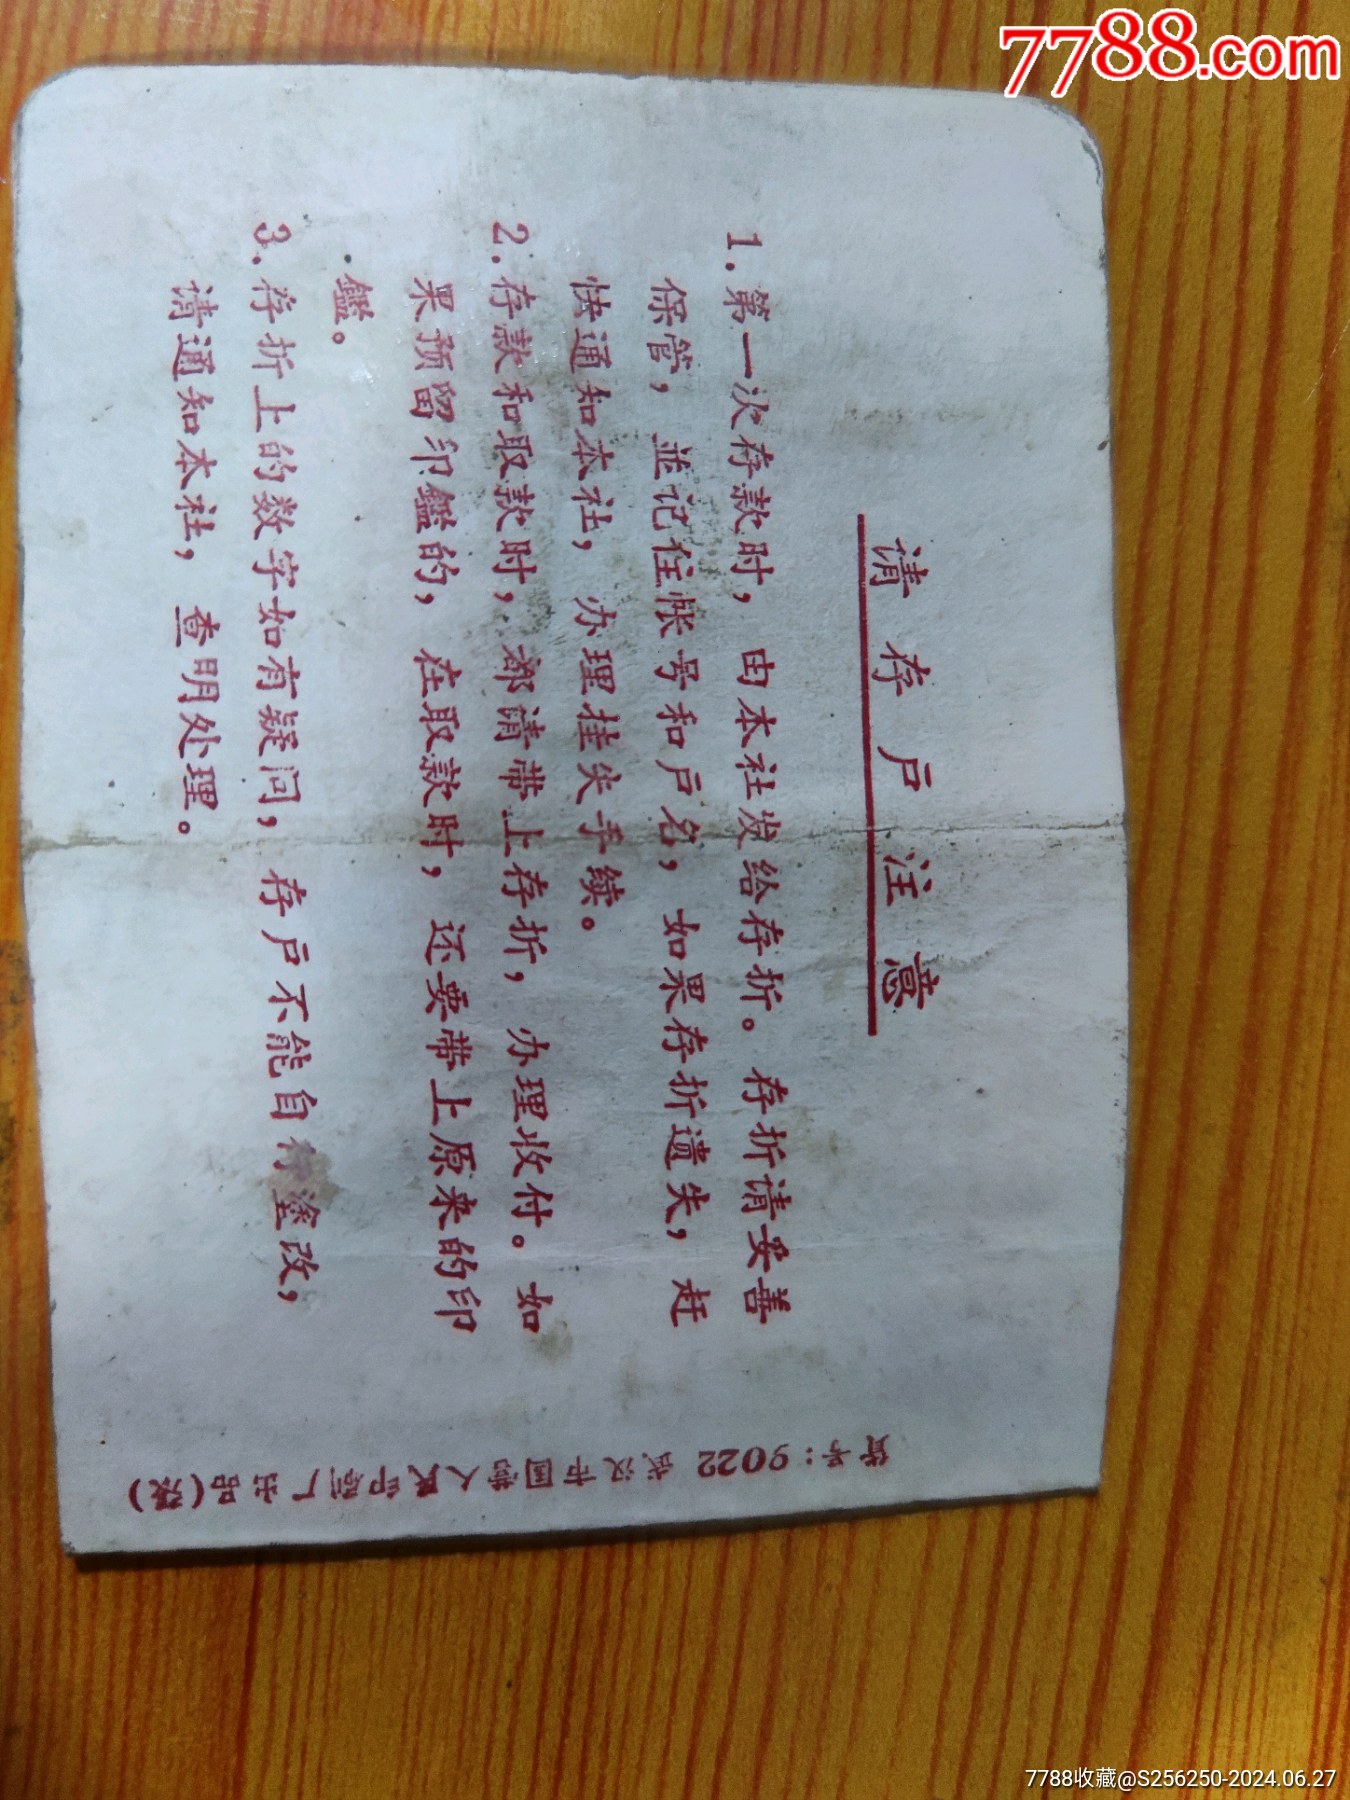 7788.com
请存户注意
1.第一次存款时，由本社发给存折。存折请妥善
保管，並记住帐号和户名，如果存折遗失，赶
快通知本社，办理挂失手续。
2.存款和取款时，都请带上存折，办理收付。如
果预留印鑑的，在取款时，还要带上原来的印
鑑。
3.存折上的数字如有疑问，存户不能自行塗改，
请通知本社，查明处理。
货号：9022 武汉市国营人民印刷厂出品(汉)
7788收藏@S256250-2024.06.27